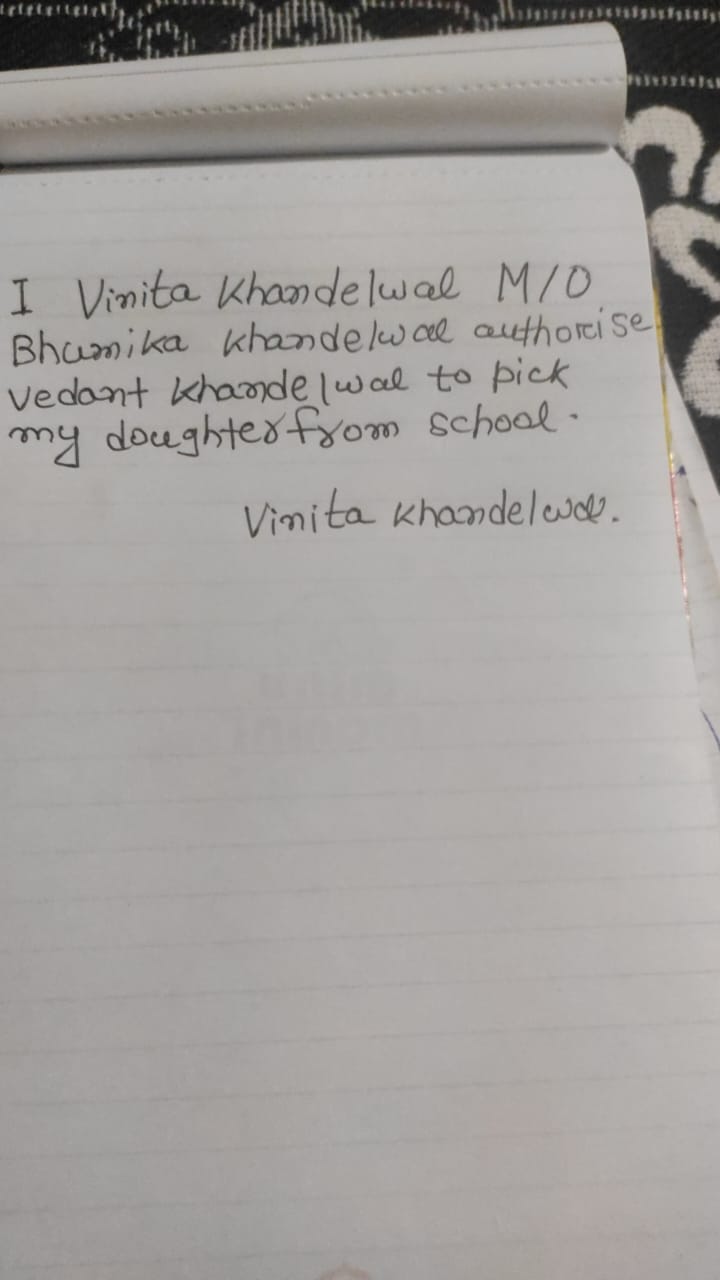 I Vinita Khandelwal M/O
Bhumika Khandelwal authorise
Vedant Khandelwal to pick
my doughter from school.
Vinita Khandelwal.